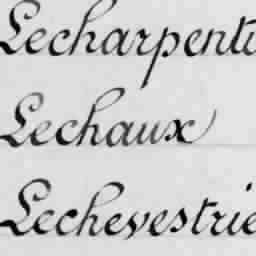 Lecharpenti
Lechaux
Lechevestrie